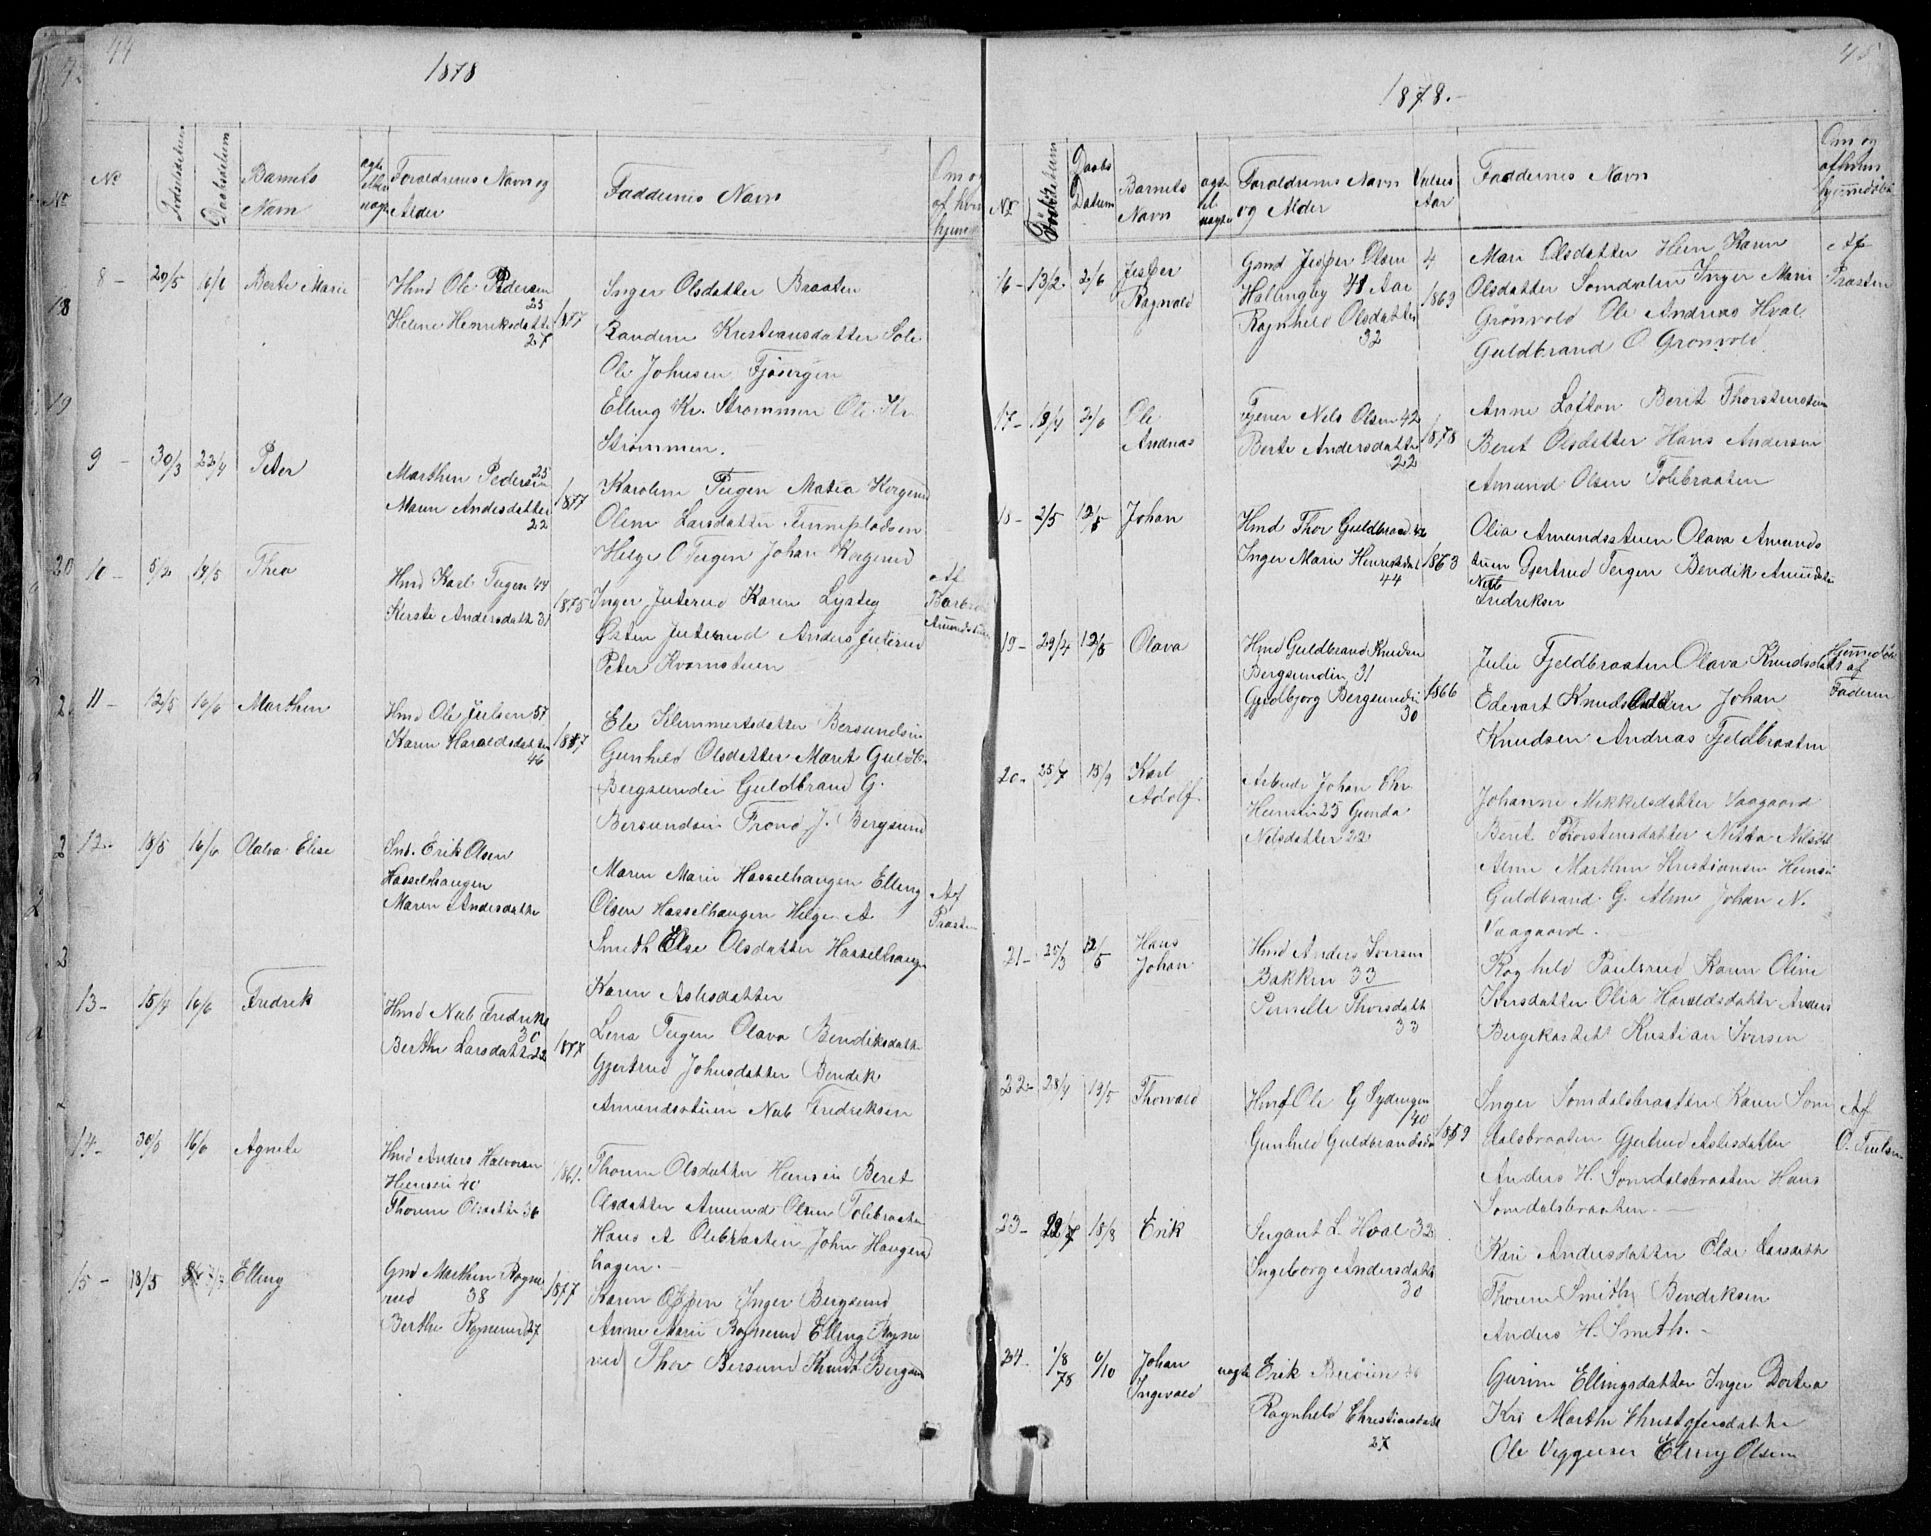 44
1878
No
Fødselsdatum
Daabsdatum
Barnets Navn
ægte eller uægte
Forældrenes Navn og Alder
Faddernes Navn
Om og af hvem hjemme
8 - 20/5 16/6 Berte Marie
Hmd Ole Pedersen 25
Helene Henriksdatte 27
1877
Inger Olsdatter Braaten
Randine Kristiansdatter Sole
Ole Johnsen
Elling Kr. Strømmen Ole Kr.
Strømmen.
9 - 30/3 22/4 Peter
Marthin Pedersen 25
Maren Andersdatter 22
1877
Karoline Teigen Matea Korgerud
Oline Larsdatter
Helge O Teigen Johan Korgerud
10 - 5/2 19/5 Thea
Hmd Karl Teigen 44
Kersti Andersdatt 31
1875
Inger Juterud Karen Lysteg
Østen Juterud Anders Juterud
Peter Kvernstuen
Af
Amundstuen
11 - 12/5 16/6 Marthin
Hmd Ole Julsen 57
Karen Haraldsdatter 46
1857
Ele Klemmertsdatter Bersundsin
Gunhild Olsdatter Maret Guldb.
Bergsundei Guldbrand G.
Bersundsin Trond J. Bergsund
12 - 18/5 16/6 Olava Elise
Ind. Erik Olsen
Hasselhaugen
Maren Andersdatte
Maren Marie Hasselhaugen Elling
Olsen Hasselhaugen Helge A
Smeth Else Olsdatter Hasselhaugen
Karen Aslesdatter
Af
Præsten
13 - 15/4 16/6 Fredrik
Hmd Nub Fredriks 30
Berthe Larsdatt 22
1877
Lena Teigen Olava Bendiksdatt
Gjertrud Johnsdatter Bendik
Amundsstuen Nub Fredriksen
14 - 30/5 16/6 Agnete
Hmd Anders Halvorsen
Heensin 40
Thorine Olsdatte 36
1861.
Thorine Olsdatter Heensin Beret
Olsdatter Amund Olsen Tolebraaten
Hans A Olebraaten John Haugen
hagen.
15 - 18/5 Elling
Gmd Marthin Rogne
rud 38
Berthe Rognerud 27
1877
Karen Oppen Inger Bergsund
Anne Marie Rognerud Elling Rogne
rud Thor Bersund Knudt Bergsun
45
1878.-
No
Fødselsdatum
Daabs Datum
Barnets Navn
ægte el uægte
Forældrenes Navn og Alder
Vielses Aar
Faddernes Navn
Om og af hvem hjemmedøbt
16 - 13/2 2/6 Jesper
Ragnvald
Gmd Jesper Olsen
Hallingby 41 Aar
Ragnhild Olsdatter
32
4
1869
Mari Olsdatter Hein Karen
Olsdatter Somdalen Inger Marie
Grønvold Ole Andreas Hval
Guldbrand O Grønvold.
Af
Præsten
17 - 18/4 2/6 Ole
Andreas
Tjener Nels Olsen 42
Berte Andersdatte
22
1878
Anne Lofton Berit Thorstensdatt
Beret Olsdatter Hans Andersen
Amund Olsen Tolebraaten
18 - 2/5 12/5 Johan
Hmd Thor Guldbrand 42
Inger Marie Henriksdat
44
1863
Olia Amundsstuen Olava Amunds
tuen Gjertrud Teigen Bendik Amundstu
Nub
Fredriksen
19 - 29/4 12/5 Olava
Hmd Guldbrand Knudsen
Bergsundin 31
Gjøelbjorg Bergsundei
30
1866
Julie Fjeldbraaten Olava Knudsdatt
Edevart Knudsen Johan
Knudsen Andreas Fjeldbraaten
Hjemmedøbt
af
Faderen
20 - 25/7 15/9 Karl
Adolf
Arbeide Johan Chr.
Heensin 25 Gunda
Nelsdatter 22
Johanne Mikkelsdatter Vaagaard
Beret Thorstensdatter Nikka Nilsdat
Alme Marthin Kristiansen Heensi
Guldbrand G. Alme Johan N.
Vaagaard.
21 - 25/3 12/5 Hans
Johan
Hmd Anders Iversen
Bakken 33
Pernille Thorsdatt
33
Ragnhild Paulsrud Karen Oline
Iversdatter Olia Haraldsdatte Anders
Bergekastet Kristian Iversen
22 - 28/4 19/5 Thorvald
Hmd Ole G Sydengen
40
Gunhild Guldbrandsda
1859
Inger Somdalsbraaten Karen Som
dalsbraaten Gjertrud Aslesdatter
Anders H. Somdalsbraaten Hans
Somdalsbraaten.
Af
O. Truelsen
23 - 22/7 18/8 Erik
Sergant L. Hval 32
Ingeborg Andersdatt
30
Kari Andersdatter Else Larsdatt
Thorine Smithj Bendiksen
Anders H. Smeth.-
24 - 1/8 78 6/10 Johan
Ingevald
uægte
Erik Buøien 30
Ragnhild Christiansdatt
27
Gurine Ellingsdatter Inger Dortea
Kri Marthe Christofersdatte
Ole Viggersen Elling Olsen